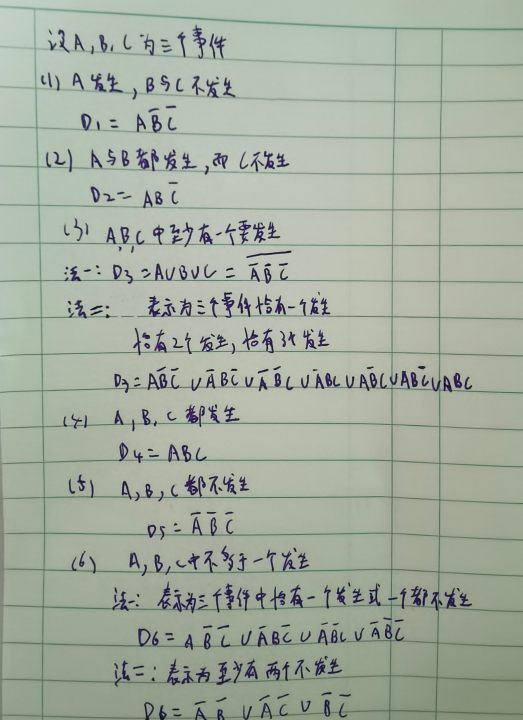 设A,B,C为三个事件
(1) A发生,B与C不发生
D1 = AB̅C̅
(2) A与B都发生,而C不发生
D2 = ABC̅
(3) A,B,C中至少有一个要发生
法一: D3 = A∪B∪C = \overline{A̅B̅C̅}
法二: 表示为三个事件恰有一个发生
恰有2个发生,恰有3个发生
D3 = AB̅C̅ ∪ A̅BC̅ ∪ A̅B̅C ∪ A̅BC ∪ AB̅C ∪ ABC̅ ∪ ABC
(4) A,B,C都发生
D4 = ABC
(5) A,B,C都不发生
D5 = A̅B̅C̅
(6) A,B,C中不多于一个发生
法一: 表示为三个事件中恰有一个发生或一个都不发生
D6 = AB̅C̅ ∪ A̅BC̅ ∪
法二: 表示为至少有两个不发生
D6 = A̅B̅ ∪ A̅C̅ ∪ B̅C̅